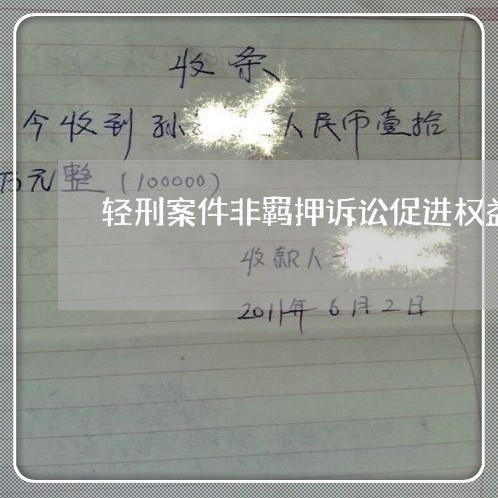 收条
今收到孙 人民币壹拾
万元整(100000)
轻刑案件非羁押诉讼促进权益
收款人
2011年6月2日